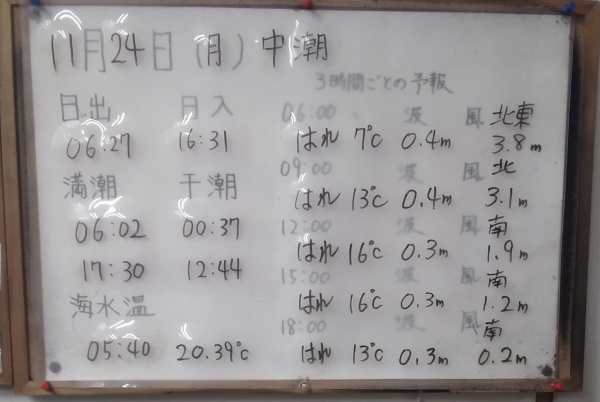 11月24日(月)中潮
3時間ごとの予報
日出 日入
06:27 16:31
満潮 干潮
06:02 00:37
17:30 12:44
海水温
05:40 20.39℃
06:00 波 風 北東
はれ 7℃ 0.4m 3.8m
09:00 波 風 北
はれ 13℃ 0.4m 3.1m
12:00 波 風 南
はれ 16℃ 0.3m 1.9m
15:00 波 風 南
はれ 16℃ 0.3m 1.2m
18:00 波 風 南
はれ 13℃ 0.3m 0.2m